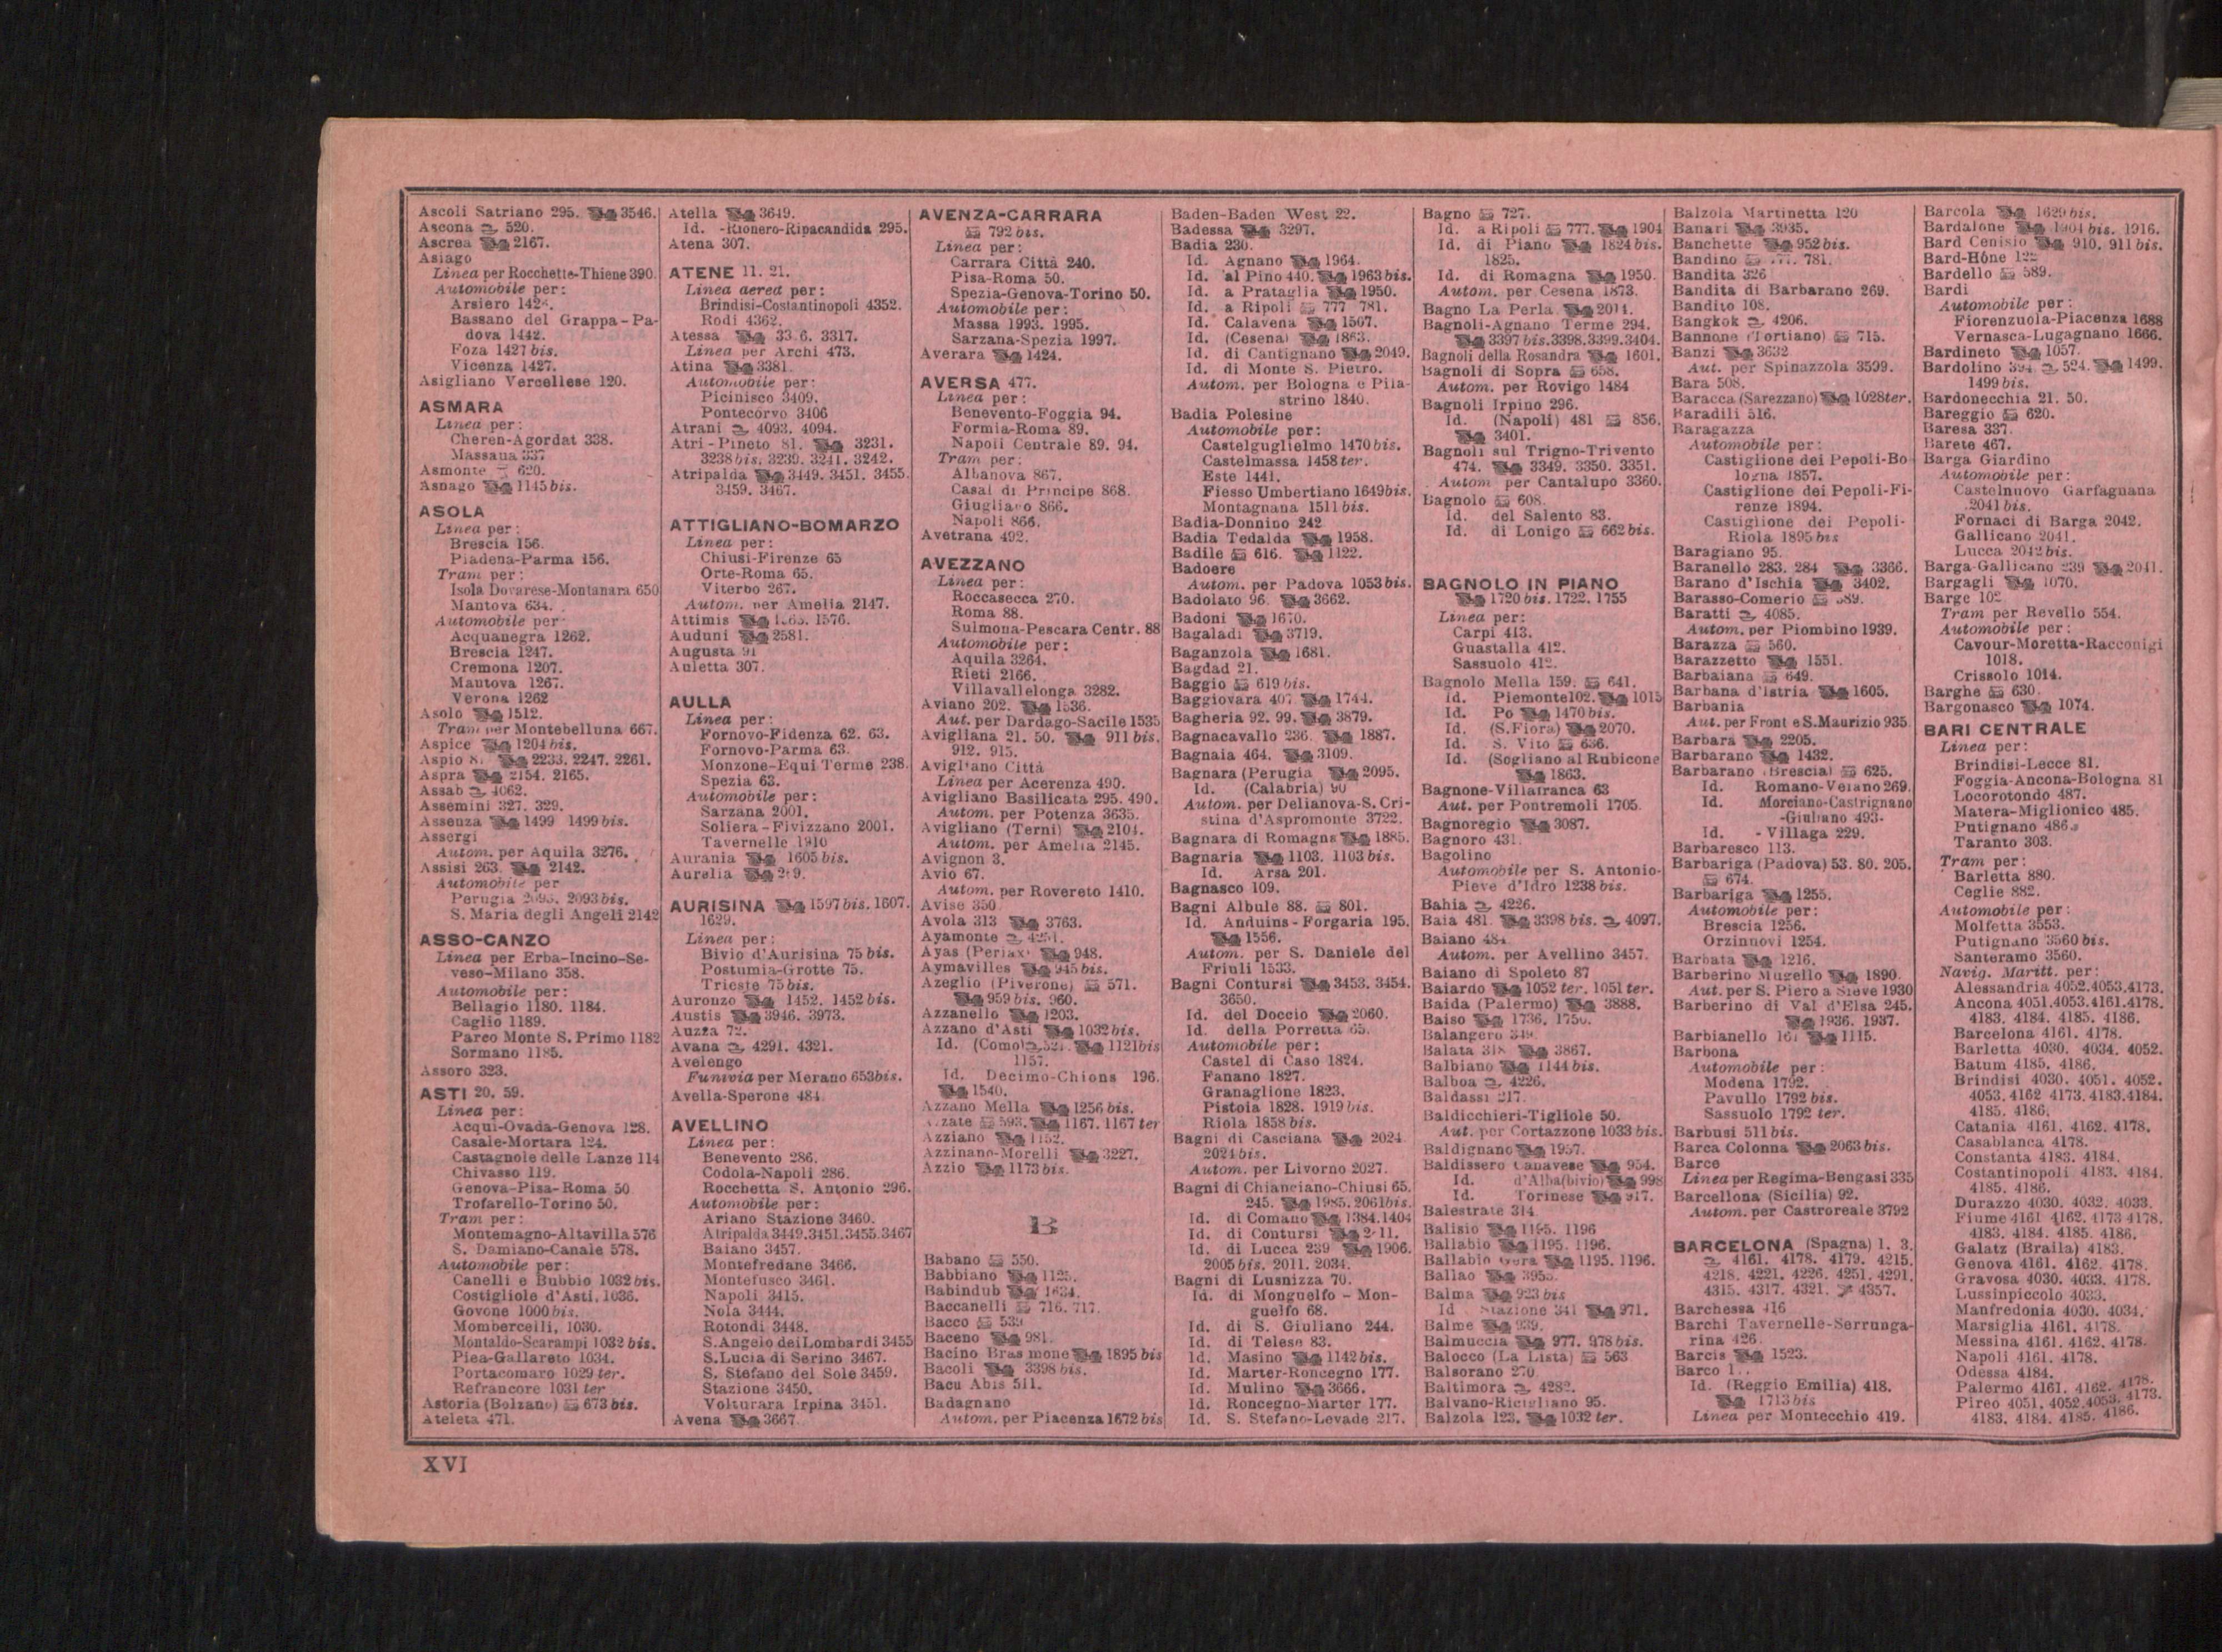 Ascoli Satriano 295. 3546.
Ascona 520.
Ascrea 2167.
Asiago
Linea per Rocchette-Thiene 390.
Automobile per:
Arsiero
Bassano del Grappa-Pa-
dova 1442.
Foza 1427 bis.
Vicenza 1427.
Asigliano Vercellese 120.
ASMARA
Linea per:
Cheren-Agordat 338.
Massaua 337
Asmonte 620.
Asnago 1145 bis.
ASOLA
Linea per:
Brescia 156.
Piadena-Parma 156.
Tram per:
Isola Dovarese-Montanara 650
Mantova 634.
Automobile per
Acquanegra 1262.
Brescia 1247.
Cremona 1207.
Mantova 1267.
Verona 1262
Asolo 1512.
Tram per Montebelluna 667.
Aspice 1204 bis.
Aspio 2233. 2247. 2261.
Aspra 2154. 2165.
Assab 4062.
Assemini 327. 329.
Assenza 1499 1499 bis.
Assergi
Autom. per Aquila 3276.
Assisi 263. 2142.
Automobile per
Perugia 2093 bis.
S. Maria degli Angeli 2142
ASSO-CANZO
Linea per Erba-Incino-Se-
veso-Milano 358.
Automobile per:
Bellagio 1180. 1184.
Caglio 1189.
Parco Monte S. Primo 1182
Sormano 1185.
Assoro 323.
ASTI 20. 59.
Linea per:
Acqui-Ovada-Genova 128.
Casale-Mortara 124.
Castagnole delle Lanze 114
Chivasso 119.
Genova-Pisa-Roma 50
Trofarello-Torino 50.
Tram per:
Montemagno-Altavilla 576
S. Damiano-Canale 578.
Automobile per:
Canelli e Bubbio 1032 bis.
Costigliole d'Asti. 1036.
Govone 1000 bis.
Mombercelli, 1030.
Montaldo-Scarampi 1032 bis.
Piea-Gallareto 1034.
Portacomaro 1029 ter.
Refrancore 1031 ter
Astoria (Bolzano) 673 bis.
Ateleta 471.
Atella 3649.
Id. -Rionero-Ripacandida 295.
Atena 307.
ATENE 11. 21.
Linea aerea per:
Brindisi-Costantinopoli 4352.
Rodi 4362.
Atessa 3317.
Linea per Archi 473.
Atina 3381.
Automobile per:
Picinisco 3409.
Pontecorvo 3406
Atrani 4093. 4094.
Atri-Pineto 81. 3231.
3238 bis. 3239. 3241. 3242.
Atripalda 3449. 3451. 3455.
3459. 3467.
ATTIGLIANO-BOMARZO
Linea per:
Chiusi-Firenze 65
Orte-Roma 65.
Viterbo 267.
Autom. per Amelia 2147.
Attimis 1576.
Auduni 2581.
Augusta 91
Auletta 307.
AULLA
Linea per:
Fornovo-Fidenza 62. 63.
Fornovo-Parma 63.
Monzone-Equi Terme 238.
Spezia 63.
Automobile per:
Sarzana 2001.
Soliera-Fivizzano 2001.
Tavernelle 1910
Aurania 1605 bis.
Aurelia
AURISINA 1597 bis. 1607.
1629.
Linea per:
Bivio d'Aurisina 75 bis.
Postumia-Grotte 75.
Trieste 75 bis.
Auronzo 1452. 1452 bis.
Austis 3946. 3973.
Auzza 72.
Avana 4291. 4321.
Avelengo
Funivia per Merano 653 bis.
Avella-Sperone 484.
AVELLINO
Linea per:
Benevento 286.
Codola-Napoli 286.
Rocchetta S. Antonio 296.
Automobile per:
Ariano Stazione 3460.
Atripalda 3449.3451.3455.3467
Baiano 3457.
Montefredane 3466.
Montefusco 3461.
Napoli 3415.
Nola 3444.
Rotondi 3448.
S. Angelo dei Lombardi 3455
S. Lucia di Serino 3467.
S. Stefano del Sole 3459.
Stazione 3450.
Volturara Irpina 3451.
Avena 3667
AVENZA-CARRARA
792 bis.
Linea per:
Carrara Città 240.
Pisa-Roma 50.
Spezia-Genova-Torino 50.
Automobile per:
Massa 1993. 1995.
Sarzana-Spezia 1997.
Averara 1424.
AVERSA 477.
Linea per:
Benevento-Foggia 94.
Formia-Roma 89.
Napoli Centrale 89. 94.
Tram per:
Albanova 867.
Casal di Principe 868.
Giugliano 866.
Napoli 866.
Avetrana 492.
AVEZZANO
Linea per:
Roccasecca 270.
Roma 88.
Sulmona-Pescara Centr. 88
Automobile per:
Aquila 3264.
Rieti 2166.
Villavallelonga 3282.
Aviano 202. 1536.
Aut. per Dardago-Sacile 1535
Avigliana 21. 50. 911 bis.
912. 915.
Avigliano Città
Linea per Acerenza 490.
Avigliano Basilicata 295. 490.
Autom. per Potenza 3635.
Avigliano (Terni) 2104.
Autom. per Amelia 2145.
Avignon 3.
Avio 67.
Autom. per Rovereto 1410.
Avise 350
Avola 313 3763.
Ayamonte 4251.
Ayas (Periax) 948.
Aymavilles 945 bis.
Azeglio (Piverone) 571.
959 bis. 960.
Azzanello 1203.
Azzano d'Asti 1032 bis.
Id. (Como) 1121 bis
1157.
Id. Decimo-Chions 196.
1540.
Azzano Mella 1256 bis.
593. 1167. 1167 ter
Azziano 1152.
Azzinano-Morelli 3227.
Azzio 1173 bis.
B
Babano 550.
Babbiano 1125.
Babindub 1634.
Baccanelli 716. 717.
Bacco 539
Baceno 981.
Bacino Bras mone 1895 bis
Bacoli 3398 bis.
Bacu Abis 511.
Badagnano
Autom. per Piacenza 1672 bis
Baden-Baden West 22.
Badessa 3297.
Badia 230.
Id. Agnano 1964.
Id. al Pino 440. 1963 bis.
Id. a Prataglia 1950.
Id. a Ripoli 777 781.
Id. Calavena 1507.
Id. (Cesena) 1863.
Id. di Cantignano 2049.
Id. di Monte S. Pietro.
Autom. per Bologna e Pila-
strino 1840.
Badia Polesine
Automobile per:
Castelguglielmo 1470 bis.
Castelmassa 1458 ter.
Este 1441.
Fiesso Umbertiano 1649 bis.
Montagnana 1511 bis.
Badia-Donnino 242
Badia Tedalda 1958.
Badile 616. 1122.
Badoere
Autom. per Padova 1053 bis.
Badolato 96. 3662.
Badoni 1670.
Bagaladi 3719.
Baganzola 1681.
Bagdad 21.
Baggio 619 bis.
Baggiovara 407 1744.
Bagheria 92. 99. 3879.
Bagnacavallo 236. 1887.
Bagnaia 464. 3109.
Bagnara (Perugia 2095.
Id. (Calabria) 90
Autom. per Delianova-S. Cri-
stina d'Aspromonte 3722.
Bagnara di Romagna 1885.
Bagnaria 1103. 1103 bis.
Id. Arsa 201.
Bagnasco 109.
Bagni Albule 88. 801.
Id. Anduins-Forgaria 195.
1556.
Autom. per S. Daniele del
Friuli 1533.
Bagni Contursi 3453. 3454.
3650.
Id. del Doccio 2060.
Id. della Porretta 65.
Automobile per:
Castel di Caso 1824.
Fanano 1827.
Granaglione 1823.
Pistoia 1828. 1919 bis.
Riola 1858 bis.
Bagni di Casciana 2024.
2024 bis.
Autom. per Livorno 2027.
Bagni di Chianciano-Chiusi 65.
245. 1985. 2061 bis.
Id. di Comano 1384.1404
Id. di Contursi
Id. di Lucca 239 1906.
2005 bis. 2011. 2034.
Bagni di Lusnizza 70.
Id. di Monguelfo-Mon-
guelfo 68.
Id. di S. Giuliano 244.
Id. di Telese 83.
Id. Masino 1142 bis.
Id. Marter-Roncegno 177.
Id. Mulino 3666.
Id. Roncegno-Marter 177.
Id. S. Stefano-Levade 217.
Bagno 727.
Id. a Ripoli 777. 1904
Id. di Piano 1824 bis.
1825.
Id. di Romagna 1950.
Autom. per Cesena 1873.
Bagno La Perla 2011.
Bagnoli-Agnano Terme 294.
3397 bis.3398.3399.3404.
Bagnoli della Rosandra 1601.
Bagnoli di Sopra 658.
Autom. per Rovigo 1484
Bagnoli Irpino 296.
Id. (Napoli) 481 856.
3401.
Bagnoli sul Trigno-Trivento
474. 3349. 3350. 3351.
Autom per Cantalupo 3360.
Bagnolo 608.
Id. del Salento 83.
Id. di Lonigo 662 bis.
BAGNOLO IN PIANO
1720 bis. 1722. 1755
Linea per:
Carpi 413.
Guastalla 412.
Sassuolo 412.
Bagnolo Mella 159. 641.
Id. Piemonte 102. 1015
Id. Po 1470 bis.
Id. (S. Fiora) 2070.
Id. S. Vito 636.
Id. (Sogliano al Rubicone
1863.
Bagnone-Villafranca 63
Aut. per Pontremoli 1705.
Bagnoregio 3087.
Bagnoro 431.
Bagolino
Automobile per S. Antonio-
Pieve d'Idro 1238 bis.
Bahia 4226.
Baia 481. 3398 bis. 4097.
Baiano 484
Autom. per Avellino 3457.
Baiano di Spoleto 87
Baiardo 1052 ter. 1051 ter.
Baida (Palermo) 3888.
Baiso 1736. 1750.
Balangero 349.
Balata 318 3867.
Balbiano 1144 bis.
Balboa 4226.
Baldassi 217.
Baldicchieri-Tigliole 50.
Aut. per Cortazzone 1033 bis.
Baldignano 1957.
Baldissero Canavese 954.
Id. d'Alba(bivio) 998
Id. Torinese 917.
Balestrate 314
Balisio 1195. 1196
Ballabio 1195. 1196.
Ballabio 1195. 1196.
Ballao
Balma 923 bis
Id Stazione 341 971.
Balme 939.
Balmuccia 977. 978 bis.
Balocco (La Lista) 563
Balsorano 270
Baltimora 4282.
Balvano-Ricigliano 95.
Balzola 123. 1032 ter.
Balzola Martinetta 120
Banari 3935.
Banchette 952 bis.
Bandino 781.
Bandita 326
Bandita di Barbarano 269.
Bandito 108.
Bangkok 4206.
Bannone (Tortiano) 715.
Banzi 3632
Aut. per Spinazzola 3599.
Bara 508.
Baracca (Sarezzano) 1028 ter.
Baradili 516.
Baragazza
Automobile per:
Castiglione dei Pepoli-Bo
logna 1857.
Castiglione dei Pepoli-Fi-
renze 1894.
Castiglione dei Pepoli-
Riola 1895 bis
Baragiano 95.
Baranello 283. 284 3366.
Barano d'Ischia 3402.
Barasso-Comerio
Baratti 4085.
Autom. per Piombino 1939.
Barazza 560.
Barazzetto 1551.
Barbaiana 649.
Barbana d'Istria 1605.
Barbania
Aut. per Front e S. Maurizio 935
Barbara 2205.
Barbarano 1432.
Barbarano (Brescia) 625.
Id. Romano-Veiano 269.
Id. Morciano-Castrignano
-Giuliano 493.
Id. -Villaga 229.
Barbaresco 113.
Barbariga (Padova) 53. 80. 205.
674.
Barbariga 1255.
Automobile per:
Brescia 1256.
Orzinuovi 1254.
Barbata 1216.
Barberino Mugello 1890.
Aut. per S. Piero a Sieve 1930
Barberino di Val d'Elsa 245.
1936. 1937.
Barbianello 1115.
Barbona
Automobile per:
Modena 1792.
Pavullo 1792 bis.
Sassuolo 1792 ter.
Barbusi 511 bis.
Barca Colonna 2063 bis.
Barce
Linea per Regima-Bengasi 335
Barcellona (Sicilia) 92.
Autom. per Castroreale 3792
BARCELONA (Spagna) 1. 3.
4161. 4178. 4179. 4215.
4218. 4221. 4226. 4251. 4291.
4315. 4317. 4321. 4357.
Barchessa 416
Barchi Tavernelle-Serrunga-
rina 426.
Barcis 1523.
Barco
Id. (Reggio Emilia) 418.
1713 bis
Linea per Montecchio 419.
Barcola 1629 bis.
Bardalone 1904 bis. 1916.
Bard Cenisio 910. 911 bis.
Bard-Hône
Bardello 589.
Bardi
Automobile per:
Fiorenzuola-Piacenza 1688
Vernasca-Lugagnano 1666.
Bardineto 1057.
Bardolino 394 524. 1499.
1499 bis.
Bardonecchia 21. 50.
Bareggio 620.
Baresa 337.
Barete 467.
Barga Giardino
Automobile per:
Castelnuovo Garfagnana
2041 bis.
Fornaci di Barga 2042.
Gallicano 2041.
Lucca 2042 bis.
Barga-Gallicano 239 2041.
Bargagli 1070.
Barge 102
Tram per Revello 554.
Automobile per:
Cavour-Moretta-Racconigi
1018.
Crissolo 1014.
Barghe 630.
Bargonasco 1074.
BARI CENTRALE
Linea per:
Brindisi-Lecce 81.
Foggia-Ancona-Bologna 81
Locorotondo 487.
Matera-Miglionico 485.
Putignano 486.
Taranto 303.
Tram per:
Barletta 880.
Ceglie 882.
Automobile per:
Molfetta 3553.
Putignano 3560 bis.
Santeramo 3560.
Navig. Maritt. per:
Alessandria 4052.4053.4173.
Ancona 4051.4053.4161.4178.
4183. 4184. 4185. 4186.
Barcelona 4161. 4178.
Barletta 4030. 4034. 4052.
Batum 4185. 4186.
Brindisi 4030. 4051. 4052.
4053. 4162 4173. 4183.4184.
4185. 4186.
Catania 4161. 4162. 4178.
Casablanca 4178.
Constanta 4183. 4184.
Costantinopoli 4183. 4184.
4185. 4186.
Durazzo 4030. 4032. 4033.
Fiume 4161 4162. 4173 4178.
4183. 4184. 4185. 4186.
Galatz (Braila) 4183.
Genova 4161. 4162. 4178.
Gravosa 4030. 4033. 4178.
Lussinpiccolo 4033.
Manfredonia 4030. 4034.
Marsiglia 4161. 4178.
Messina 4161. 4162. 4178.
Napoli 4161. 4178.
Odessa 4184.
Palermo 4161. 4162. 4178.
Pireo 4051. 4052.4053. 4173.
4183. 4184. 4185. 4186.
XVI